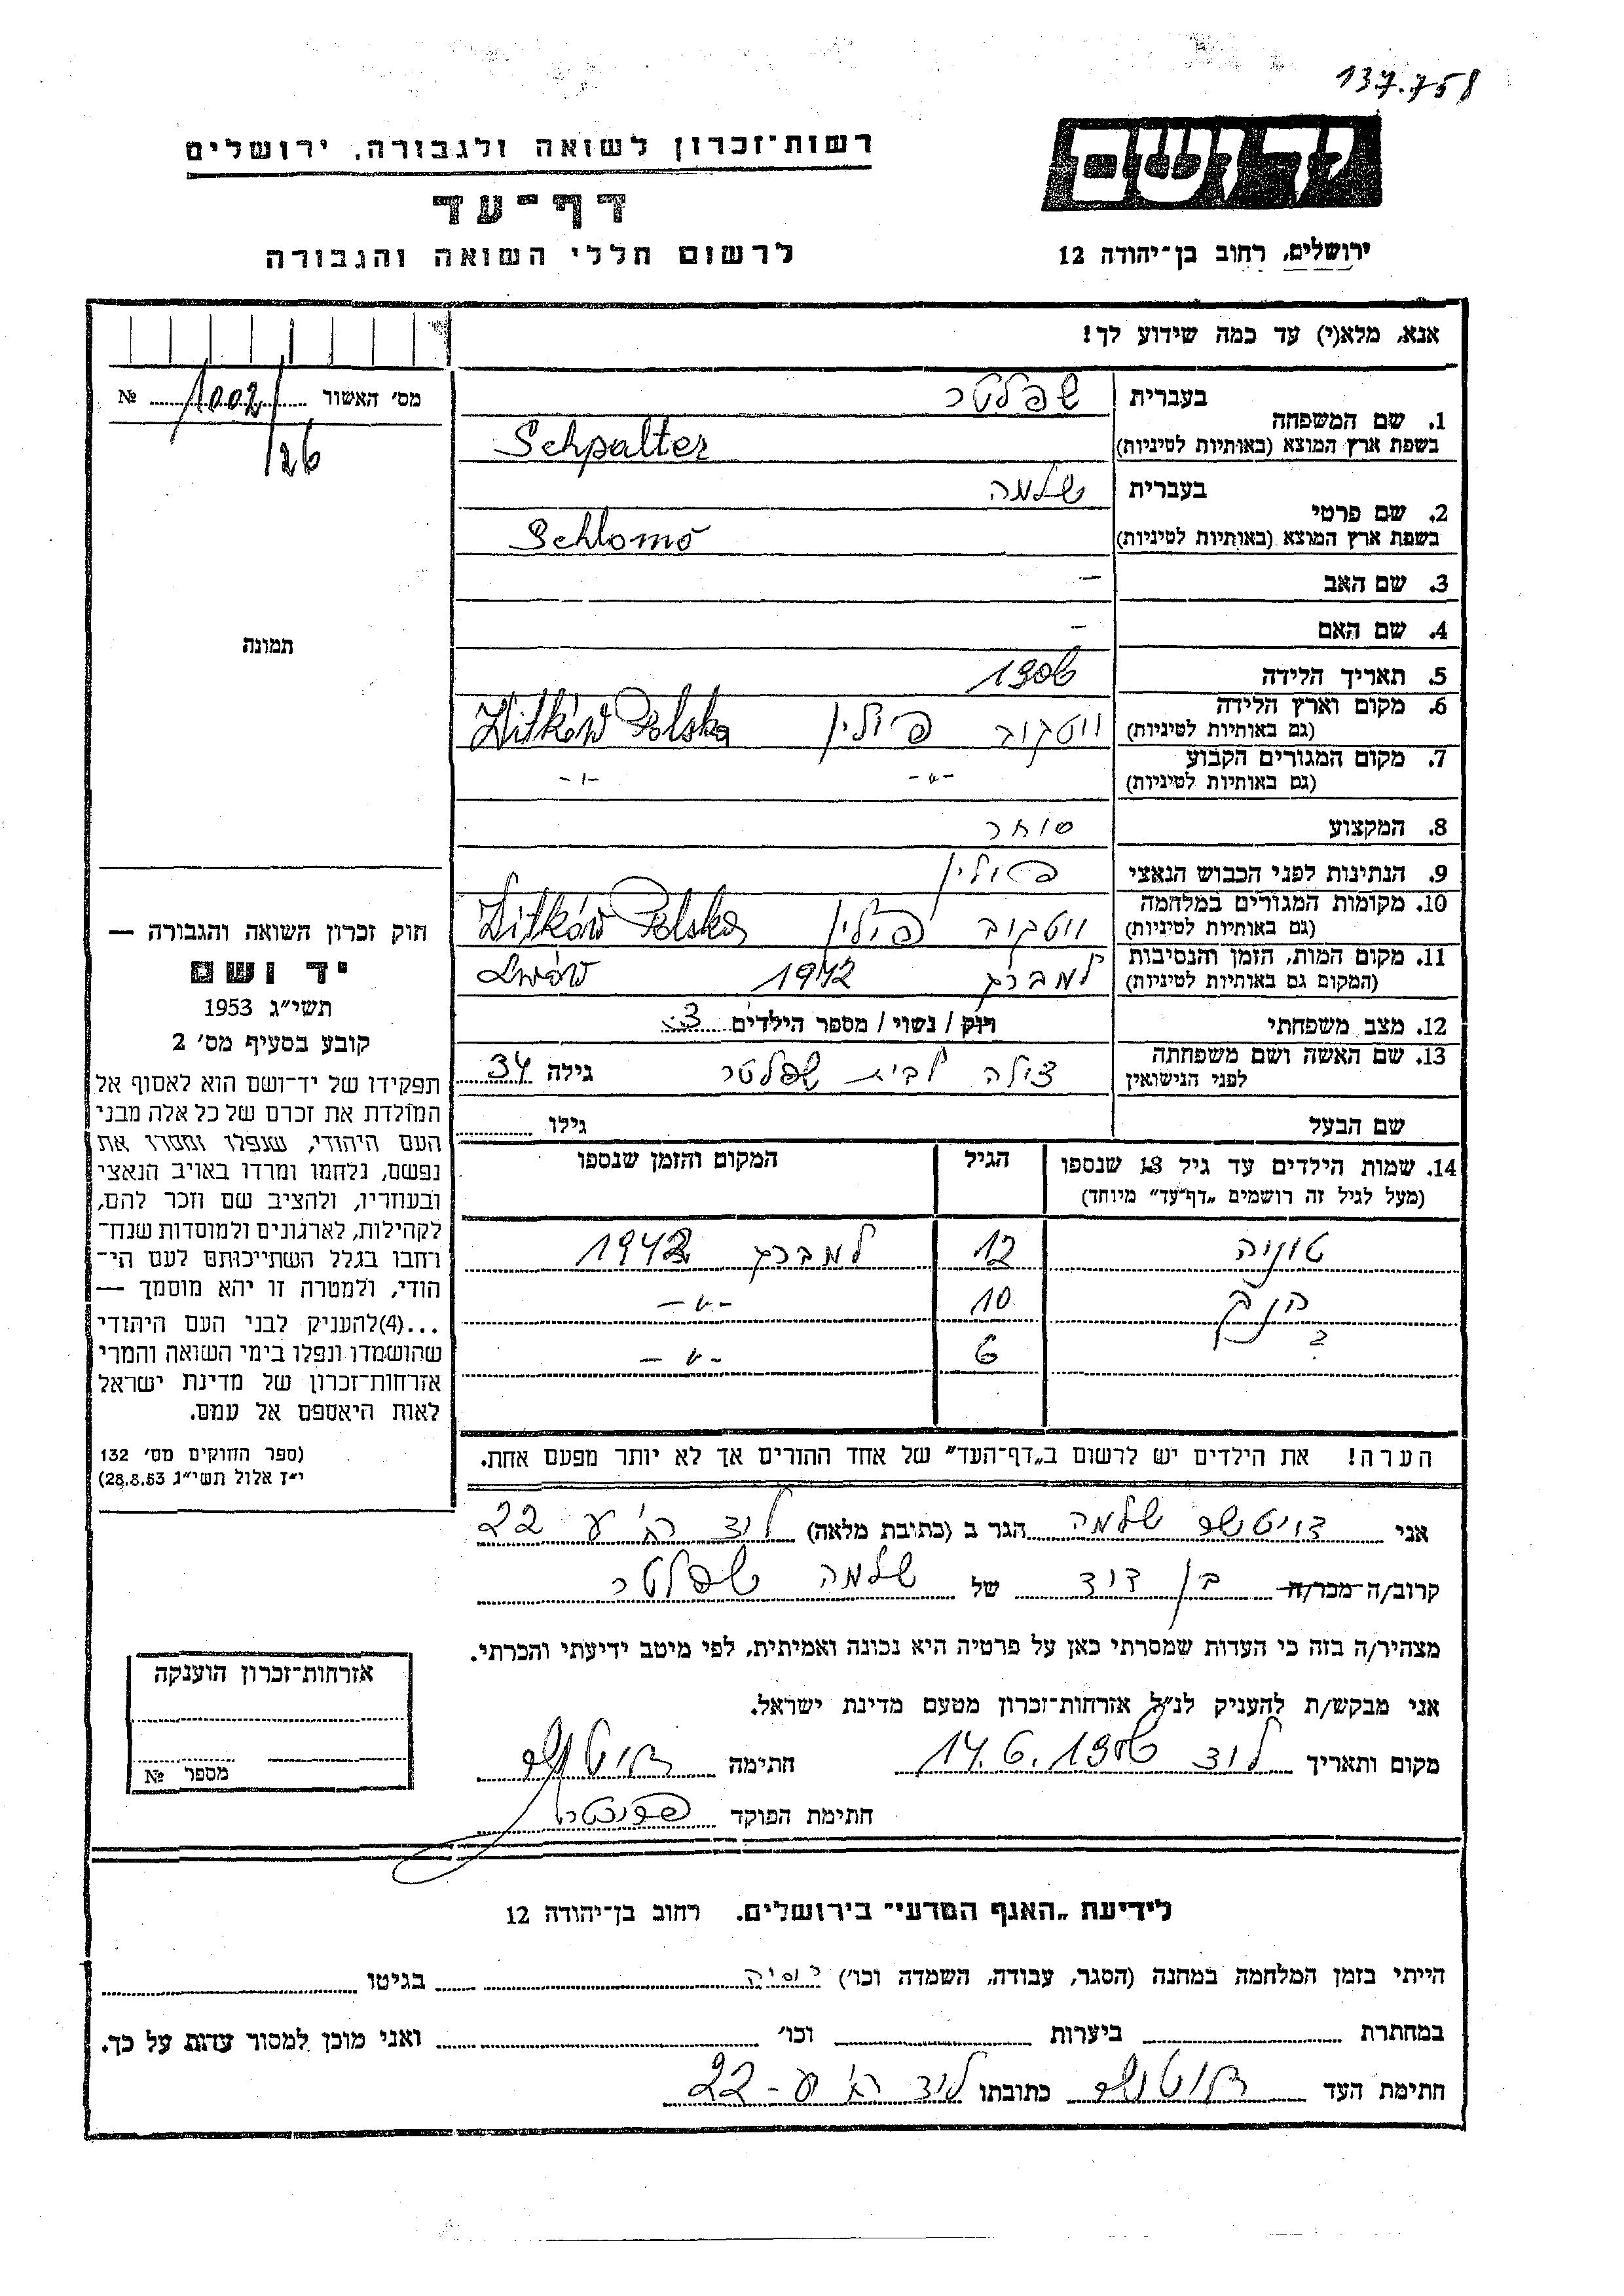 137.758
יד ושם
רשות־זכרון לשואה ולגבורה, ירושלים
דף־עד
לרשום חללי השואה והגבורה
ירושלים, רחוב בן־יהודה 12
אנא, מלא(י) עד כמה שידוע לך!
מס' האשור 1002/ №
/26
תמונה
בעברית שפלטר
1. שם המשפחה
בשפת ארץ המוצא (באותיות לטיניות) Schpalter
בעברית שלמה
2. שם פרטי
בשפת ארץ המוצא (באותיות לטיניות) Schlomo
3. שם האב –
4. שם האם –
5. תאריך הלידה 1906
6. מקום וארץ הלידה
(גם באותיות לטיניות) וויטקוב פולין Witków Polska
7. מקום המגורים הקבוע
(גם באותיות לטיניות) -"- -"-
8. המקצוע סוחר
9. הנתינות לפני הכבוש הנאצי פולין
10. מקומות המגורים במלחמה
(גם באותיות לטיניות) וויטקוב פולין Witków Polska
11. מקום המות, הזמן והנסיבות
(המקום גם באותיות לטיניות) למברג 1942 Lwów
12. מצב משפחתי רוק / נשוי / מספר הילדים 3
13. שם האשה ושם משפחתה
לפני הנישואין צילה לבית שפלטר גילה 34
שם הבעל גילו
14. שמות הילדים עד גיל 18 שנספו הגיל המקום והזמן שנספו
(מעל לגיל זה רושמים „דף־עד" מיוחד)
טוניה 12 למברג 1942
10 -"-
? 6 -"-
הערה! את הילדים יש לרשום ב„דף־העד" של אחד ההורים אך לא יותר מפעם אחת.
חוק זכרון השואה והגבורה —
יד ושם
תשי"ג 1953
קובע בסעיף מס' 2
תפקידו של יד־ושם הוא לאסוף אל
המולדת את זכרם של כל אלה מבני
העם היהודי, שנפלו ומסרו את
נפשם, נלחמו ומרדו באויב הנאצי
ובעוזריו, ולהציב שם וזכר להם,
לקהילות, לארגונים ולמוסדות שנח־
רחבו בגלל השתייכותם לעם הי־
הודי, ולמטרה זו יהא מוסמך —
...(4)להעניק לבני העם היהודי
שהושמדו ונפלו בימי השואה והמרי
אזרחות־זכרון של מדינת ישראל
לאות היאספם אל עמם.
(ספר החוקים מס' 132
י"ז אלול תשי"ג 28.8.53)
אני דויטשר שלמה הגר ב (כתובת מלאה) לוד 22
קרוב/ה מכר/ה בן דוד של שלמה שפלטר
מצהיר/ה בזה כי העדות שמסרתי כאן על פרטיה היא נכונה ואמיתית, לפי מיטב ידיעתי והכרתי.
אני מבקש/ת להעניק לנ"ל אזרחות־זכרון מטעם מדינת ישראל.
מקום ותאריך לוד 14.6. חתימה
חתימת הפוקד
אזרחות־זכרון הוענקה
מספר №
לידיעת „האגף המדעי" בירושלים. רחוב בן־יהודה 12
הייתי בזמן המלחמה במחנה (הסגר, עבודה, השמדה וכו') רוסיה בגיטו
במחתרת ביערות וכו' ואני מוכן למסור עדות על כך.
חתימת העד כתובתו לוד 22